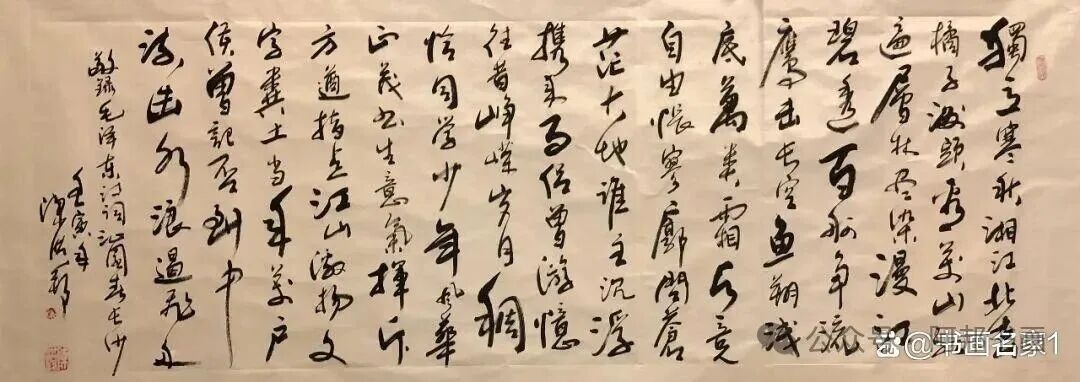 獨立寒秋湘江北去
橘子洲頭看万山紅
遍層林尽染漫江
碧透百舸争流
鷹击长空魚翔浅
底萬类霜天竞
自由悵寥廓問蒼
茫大地谁主沉浮
携来百侣曾游憶
往昔峥嵘岁月稠
恰同学少年風華
正茂书生意氣揮斥
方遒指点江山激扬文
字糞土当年万户
侯曾記否到中
流击水浪遏飛舟
敬録毛泽东诗词沁園春长沙
壬寅年
公众号
书画名家1